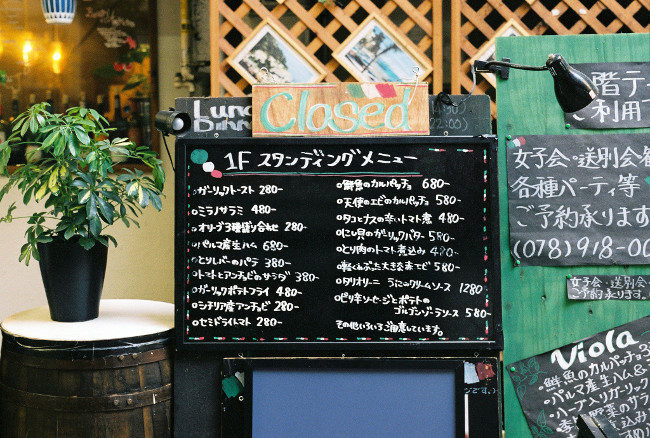 Closed
Lunc
Dinn
22:00)
1F スタンディングメニュー
ガーリックトースト 280-
ミラノサラミ 480-
オリーブ3種盛り合せ 280-
パルマ産生ハム 680-
とりレバーのパテ 380-
トマトとアンチョビのサラダ 380-
ガーリックポテトフライ 480-
シチリア産アンチョビ 280-
セミドライトマト 280-
鮮魚のカルパッチョ 680-
天使のエビのカルパッチョ 580-
タコとナスの辛いトマト煮 480-
とり肉のトマト煮込み 480-
タリオリーニ うにのクリームソース 1280-
ピリ辛ソーセージとポテトの
ゴルゴンゾーラソース 580-
その他いろいろご用意しています。
階テ
ご利用
女子会・送別会
各種パーティ等
ご予約承ります
(078)918-00
女子会・送別会
ご予約承ります。
Viola
・鮮魚のカルパッチョ
・パルマ産生ハム&
・ハーブ入りガーリック
野菜のサラ